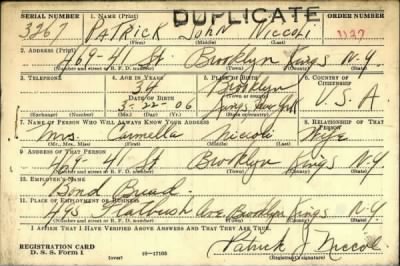 SERIAL NUMBER 1. NAME (Print) DUPLICATE ORDER NUMBER
3267 PATRICK JOHN NICCOLI 1127
(First) (Middle) (Last)
2. ADDRESS (Print)
469-41 St. Brooklyn Kings N-Y.
(Number and street or R. F. D. number) (Town) (County) (State)
3. TELEPHONE 4. AGE IN YEARS 5. PLACE OF BIRTH 6. COUNTRY OF CITIZENSHIP
34 Brooklyn
DATE OF BIRTH (Town or county)
3-22-06 Kings New York U.S.A
(Exchange) (Number) (Mo.) (Day) (Yr.) (State or country)
7. NAME OF PERSON WHO WILL ALWAYS KNOW YOUR ADDRESS 8. RELATIONSHIP OF THAT PERSON
Mrs. Carmella Niccoli Wife
(Mr., Mrs., Miss) (First) (Middle) (Last)
9. ADDRESS OF THAT PERSON
469-41 St Brooklyn Kings N-Y
(Number and street or R. F. D. number) (Town) (County) (State)
10. EMPLOYER'S NAME
Bond Bread.
11. PLACE OF EMPLOYMENT OR BUSINESS
495 Flatbush Ave Brooklyn Kings N-Y
(Number and street or R. F. D. number) (Town) (County) (State)
I AFFIRM THAT I HAVE VERIFIED ABOVE ANSWERS AND THAT THEY ARE TRUE.
REGISTRATION CARD
D. S. S. Form 1 (over) 16—17105 Patrick J Niccoli
(Registrant's signature)